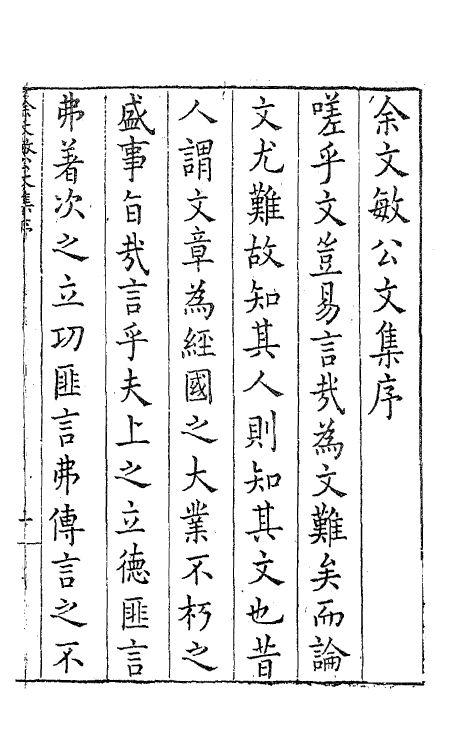 余文敏公文集序
嗟乎文豈易言哉為文難矣而論
文尤難故知其人則知其文也昔
人謂文章為經國之大業不朽之
盛事旨哉言乎夫上之立德匪言
弗著次之立功匪言弗傳言之不
余文敏公文集序
一